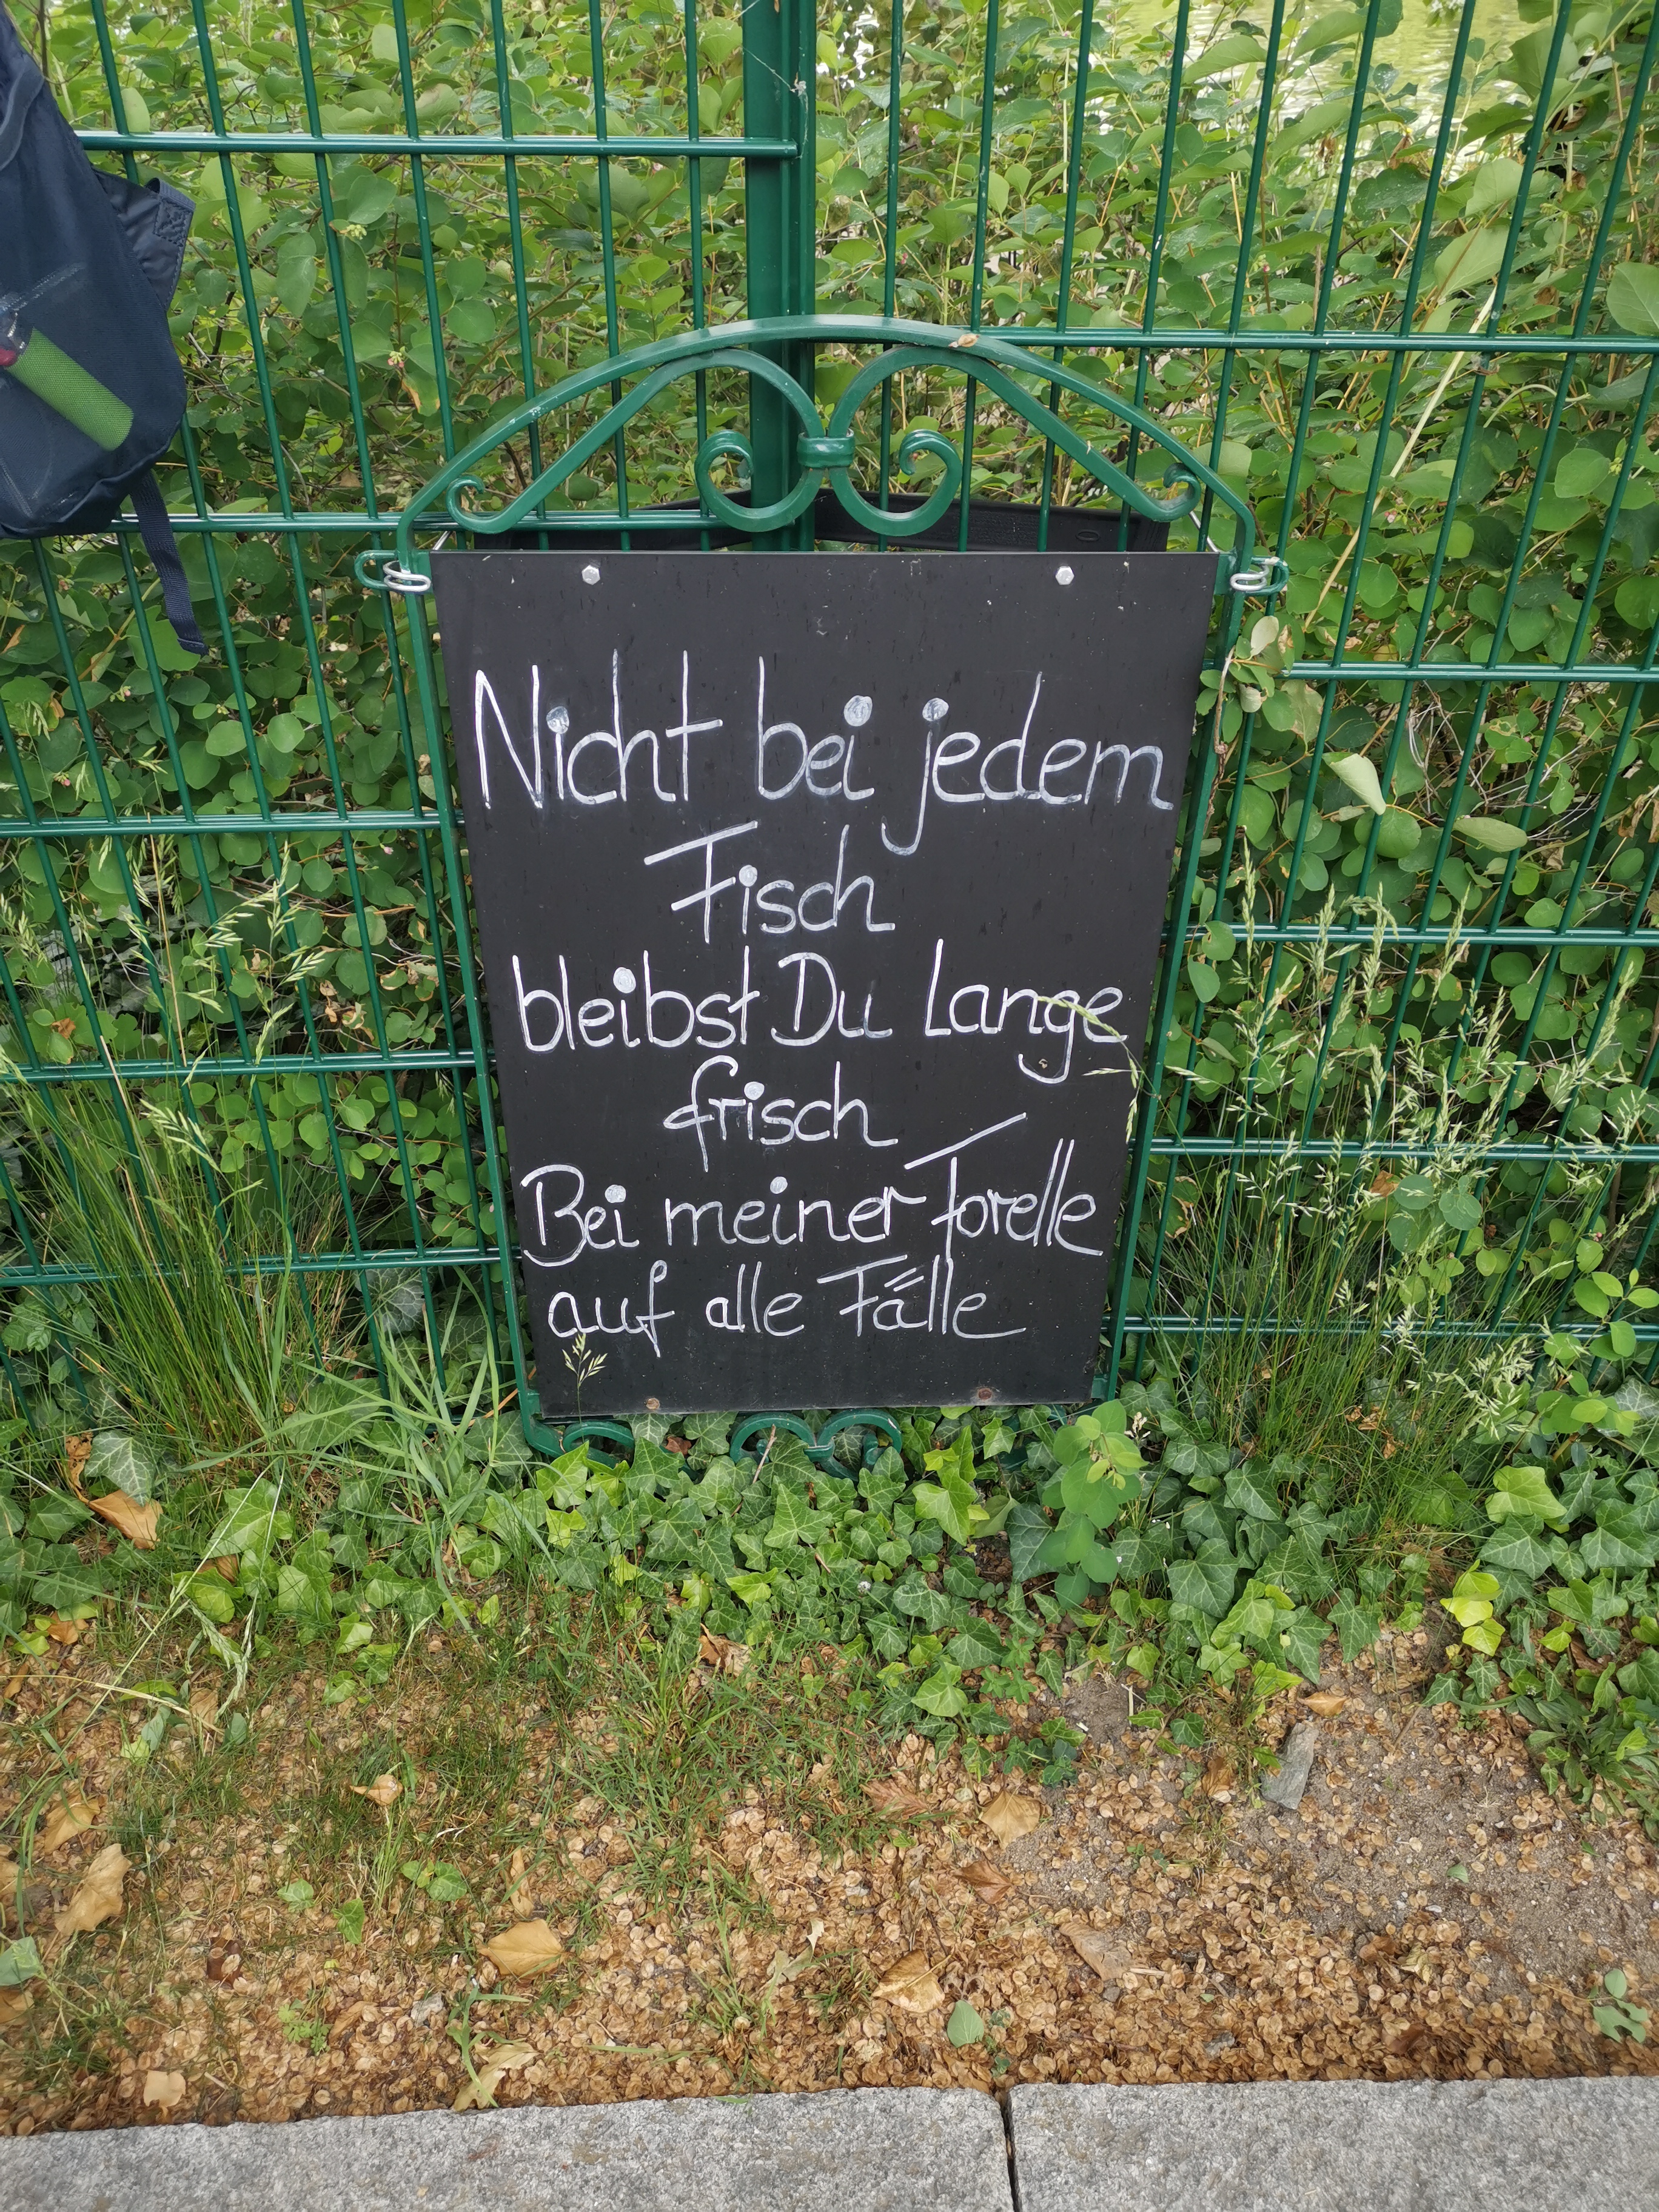 Nicht bei jedem
Fisch
bleibst Du Lange
frisch
Bei meiner Forelle
auf alle Fälle